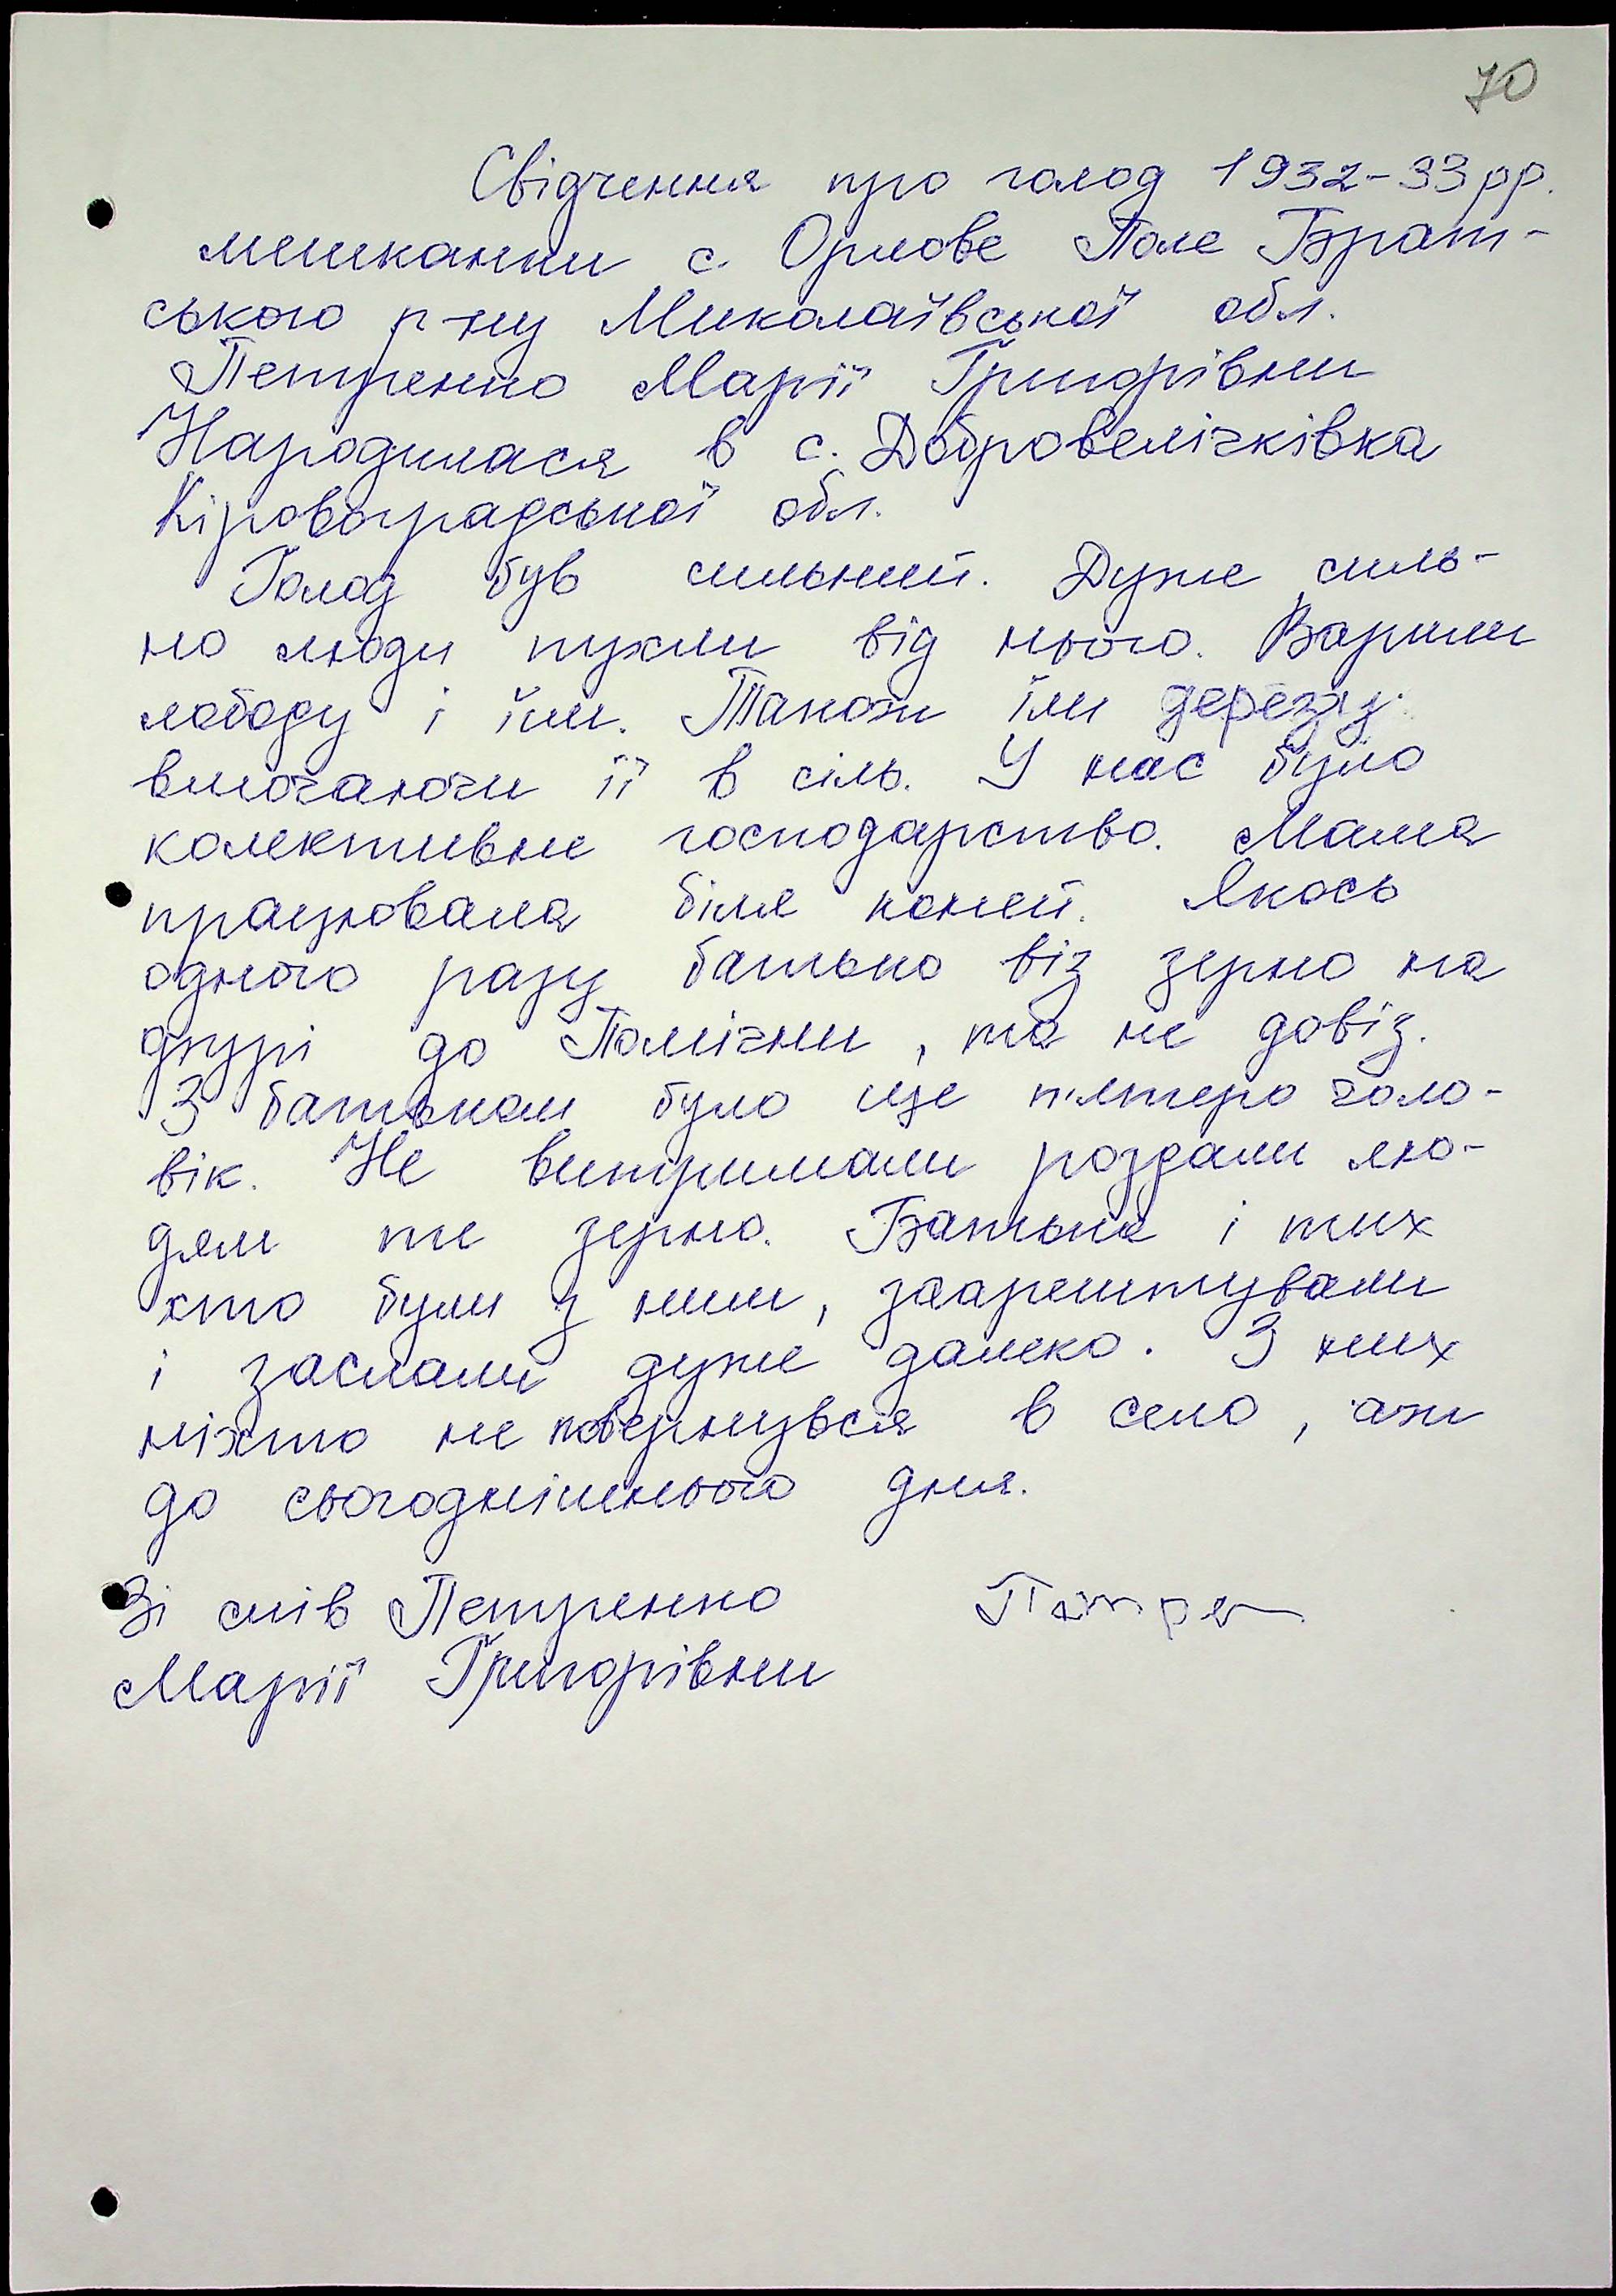 70
Свідчення про голод 1932-33 рр.
мешканки с. Орлове Поле Брат-
ського р-ну Миколаївської обл.
Петренко Марії Григорівни
Народилася в с. Добровелічківка
Кіровоградської обл.
Голод був сильний. Дуже силь-
но люди пухли від нього. Варили
лободу і їли. Також їли дерезу
вмочаючи її в сіль. У нас було
колективне господарство. Мама
працювала біля коней. Якось
одного разу батько віз зерно на
гарбі до Помічни, та не довіз.
З батьком було ще п'ятеро чоло-
вік. Не витримали роздали лю-
дям те зерно. Батька і тих
хто були з ним, заарештували
і заслали дуже далеко. З них
ніхто не повернувся в село, аж
до сьогоднішнього дня.
Зі слів Петренко Петре
Марії Григорівни